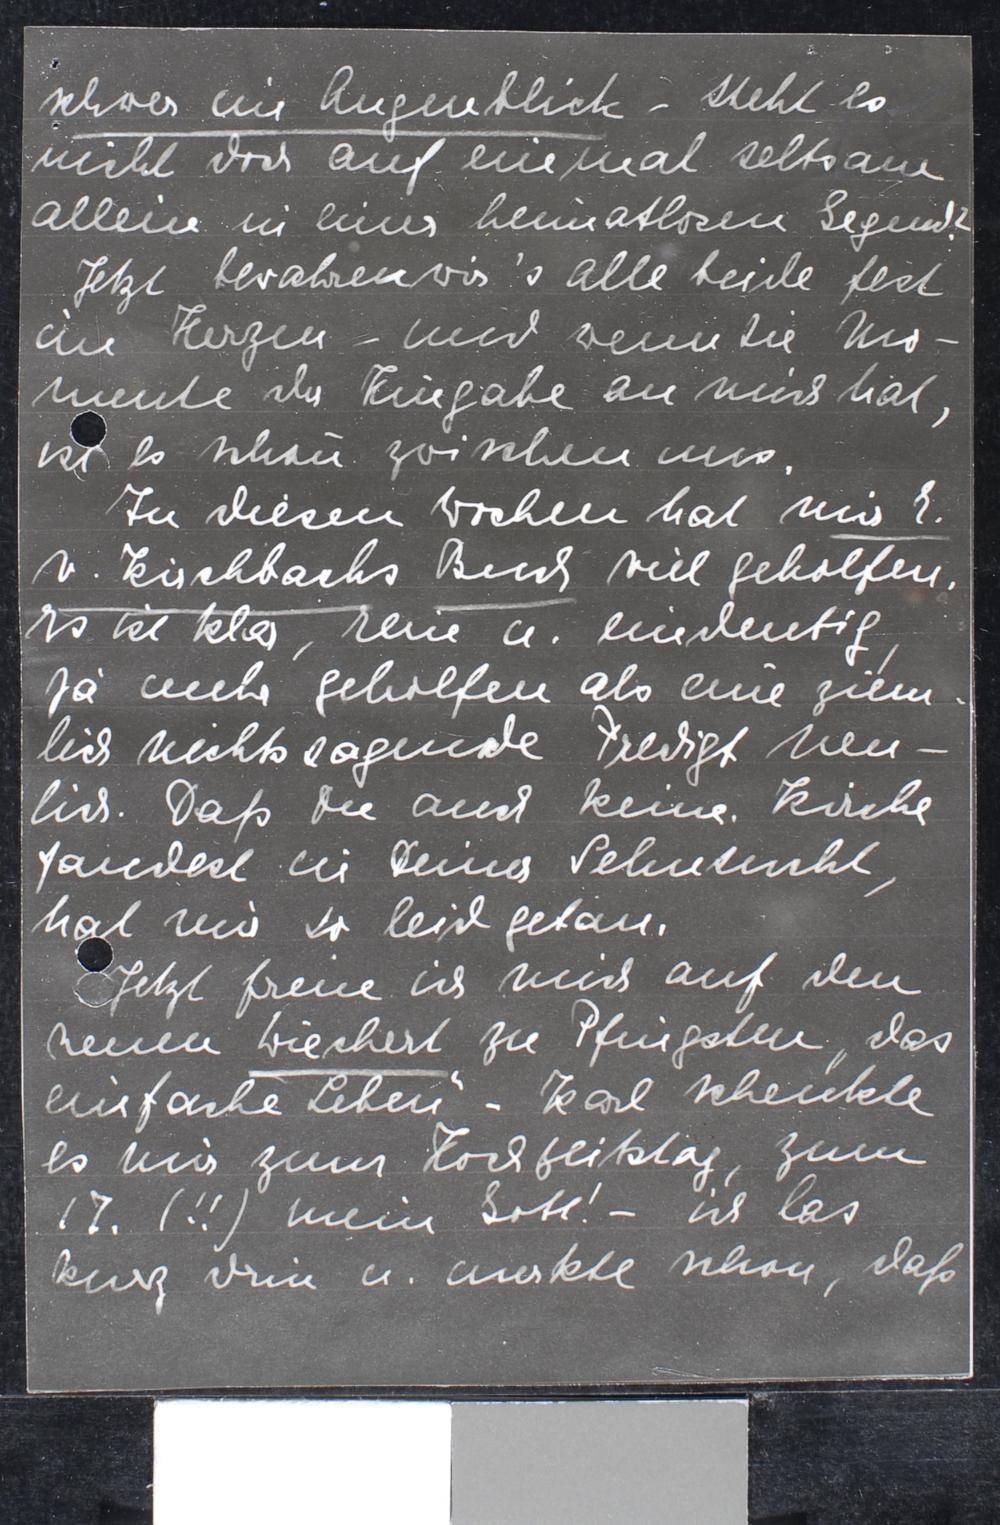 schwer ein Augenblick - steht es
nicht doch auf einmal seltsam
allein in einer heimatlosen Gegend?
Jetzt bewahren wir's alle beide fest
im Herzen - und wenn sie Mo-
mente der Hingabe an mich hat,
ist es schön zwischen uns.
In diesen Wochen hat mir E.
v. Kirchbachs Buch viel geholfen.
Es ist klar, rein u. eindeutig,
ja mehr geholfen als eine ziem-
lich nichtssagende Predigt neu-
lich. Daß Du auch keine Kirche
fandest in Deiner Sehnsucht,
hat mir so leid getan.
Jetzt freue ich mich auf den
neuen Wiechert zu Pfingsten „das
einfache Leben" - Karl schenkte
es mir zum Hochzeitstag, zum
17. (!!) mein Gott! - ich las
kurz drin u. merkte schon, daß